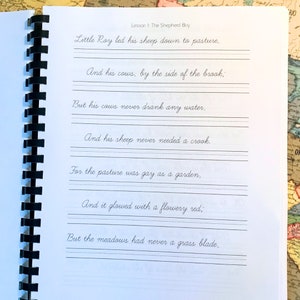 Lesson 1: The Shepherd Boy
Little Roy led his sheep down to pasture,
And his cows, by the side of the brook;
But his cows never drank any water,
And his sheep never needed a crook.
For the pasture was gay as a garden,
And it glowed with a flowery red;
But the meadows had never a grass blade,